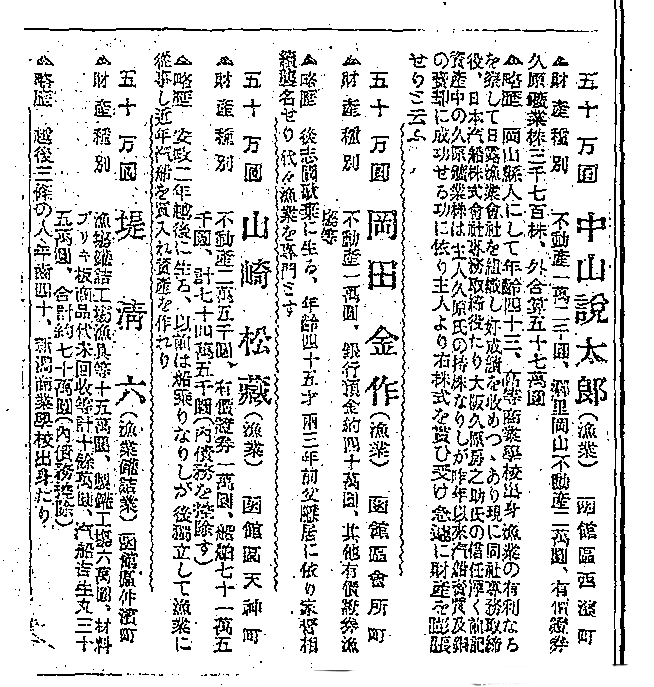 五十万圓 中山說太郎(漁業) 函館區西濱町
▲財產種別 不動產一萬二千圓、鄕里岡山不動產二萬圓、有價證券
久原鑛業株三千七百株、外合算五十七萬圓
▲略歷 岡山縣人にして年齡四十三、高等商業學校出身漁業の有利なる
を察して日露漁業會社を組織し好成績を收めつゝあり現に同社專務取締
役、日本汽船株式會社專務取締役たり大阪久原房之助氏の信任厚く前記
資產中の久原鑛業株は主人久原氏の持株なりしが昨年以來汽船賣買及銅
の賣却に成功せる功に依り主人より右株式を貰ひ受け急速に財產を膨脹
せりと云ふ
五十万圓 岡田金作(漁業) 函館區會所町
▲財產種別 不動產一萬圓、銀行預金約四十萬圓、其他有價證券漁
船等
▲略歷 後志國歌棄に生る、年齡四十五才 兩三年前父隱居に依り家督相
續襲名せり代々漁業を專門とす
五十万圓 山崎松藏(漁業) 函館區天神町
▲財產種別 不動產二萬五千圓、有價證券一萬圓、船舶七十一萬五
千圓、計七十四萬五千圓(內債務を控除す)
▲略歷 安政二年越後に生る、以前は船乘りなりしが後獨立して漁業に
從事し近年汽船を買入れ資產を作れり
五十万圓 堤淸六(漁業罐詰業) 函館區仲濱町
▲財產種別 漁場罐詰工場漁具等十五萬圓、製罐工場六萬圓、材料
ブリキ板商品代未回收等計十餘萬圓、汽船吉生丸三十
五萬圓、合計約七十萬圓(內債務控除)
▲略歷 越後三條の人年齡四十、新潟商業學校出身たり